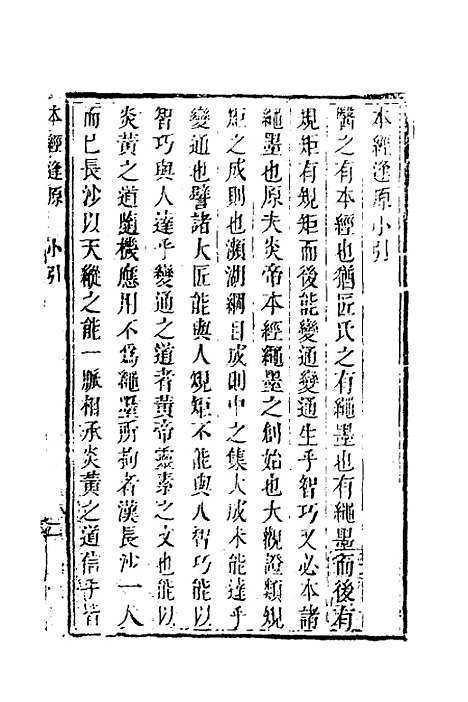 本經逢原小引
醫之有本經也猶匠氏之有繩墨也有繩墨而後有
規矩有規矩而後能變通變通生乎智巧又必本諸
繩墨也原夫炎帝本經繩墨之創始也大觀證類規
矩之成則也瀕湖綱目成則中之集大成未能達乎
變通也譬諸大匠能與人規矩不能與人智巧能以
智巧與人達乎變通之道者黄帝靈素之文也能以
炎黄之道隨機應用不爲繩墨所拘者漢長沙一人
而已長沙以天縱之能一脈相承炎黄之道信乎皆
本經逢原 小引